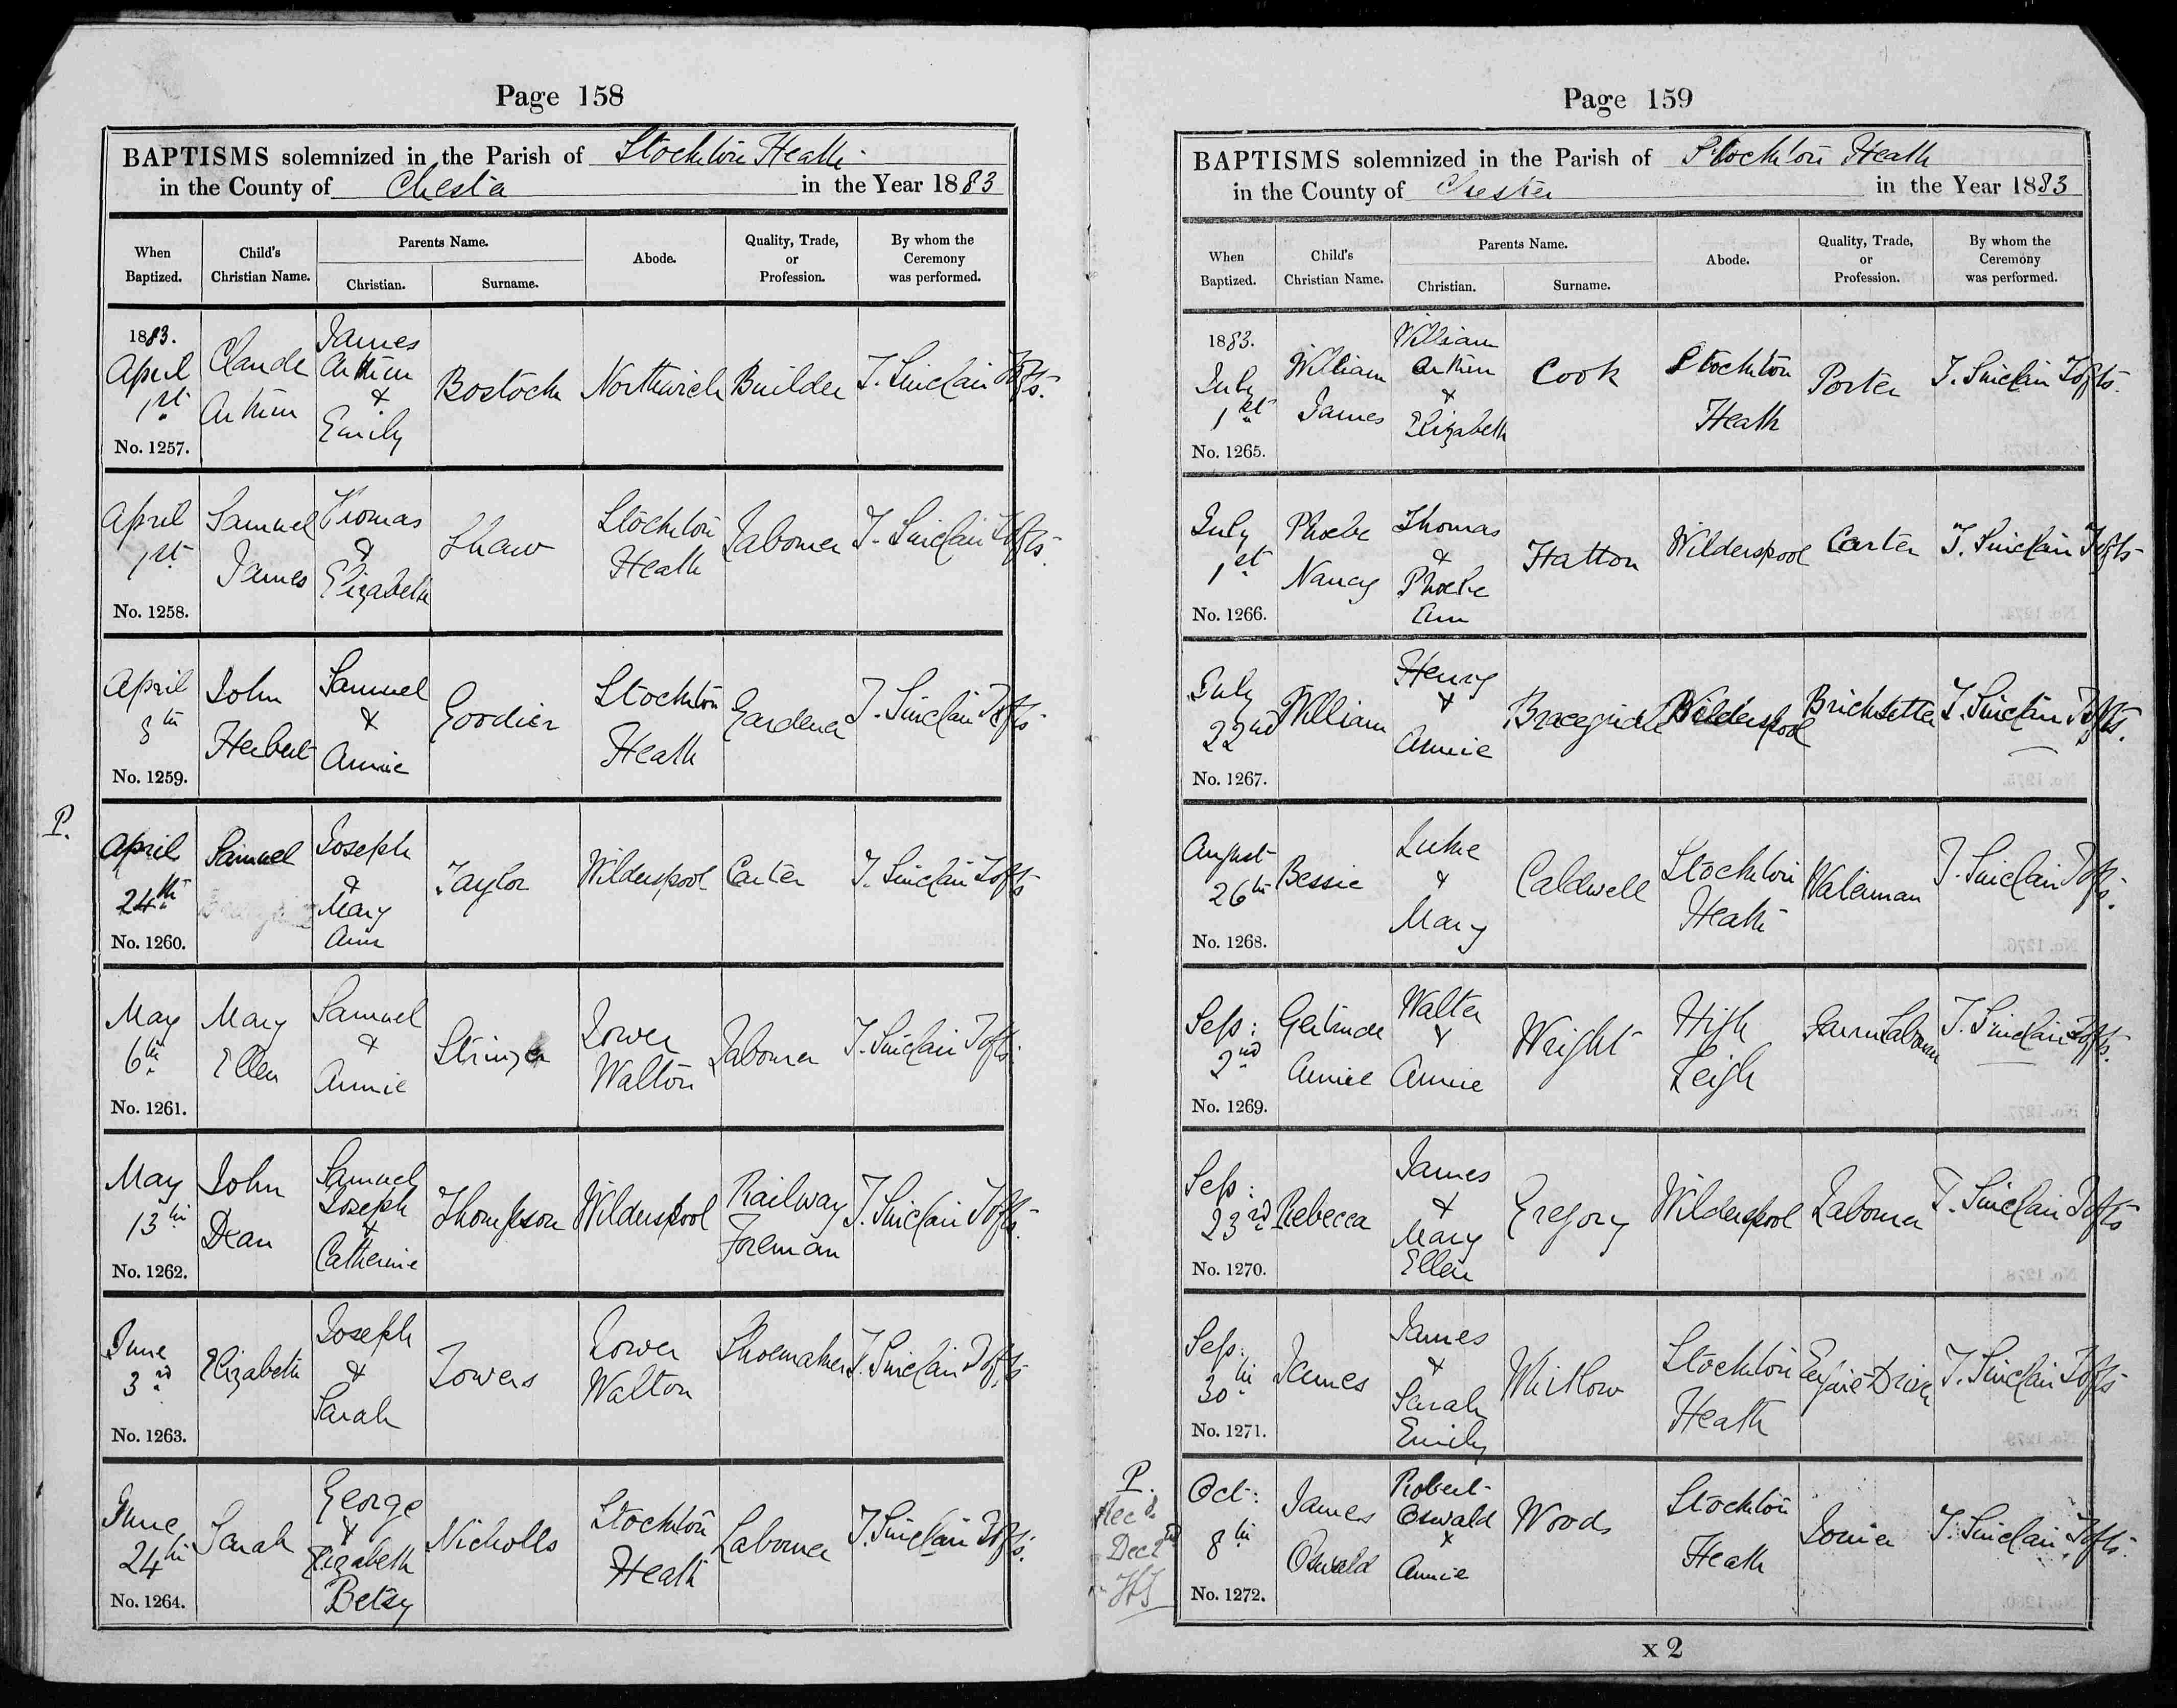 Page 158
BAPTISMS solemnized in the Parish of Stockton Heath
in the County of Chester in the Year 1883
When Baptized. Child's Christian Name. Parents Name. Christian. Surname. Abode. Quality, Trade, or Profession. By whom the Ceremony was performed.
1883. April 1st Claude Arthur James Arthur & Emily Bostock Northwich Builder T. Sinclair Tofts.
No. 1257.
April 1st Samuel James Thomas & Elizabeth Shaw Stockton Heath Labourer T. Sinclair Tofts.
No. 1258.
April 8th John Herbert Samuel & Annie Goodier Stockton Heath Gardener T. Sinclair Tofts
No. 1259.
P.
April 24th Samuel Joseph & Mary Ann Taylor Wilderspool Carter T. Sinclair Tofts
No. 1260.
May 6th Mary Ellen Samuel & Annie Stringer Lower Walton Labourer T. Sinclair Tofts.
No. 1261.
May 13th John Dean Samuel Joseph & Catherine Thompson Wilderspool Railway Foreman T. Sinclair Tofts.
No. 1262.
June 3rd Elizabeth Joseph & Sarah Towers Lower Walton Shoemaker T. Sinclair Tofts
No. 1263.
June 24th Sarah George & Elizabeth Betsy Nicholls Stockton Heath Labourer T. Sinclair Tofts.
No. 1264.
Page 159
BAPTISMS solemnized in the Parish of Stockton Heath
in the County of Chester in the Year 1883
When Baptized. Child's Christian Name. Parents Name. Christian. Surname. Abode. Quality, Trade, or Profession. By whom the Ceremony was performed.
1883. July 1st William James William Arthur & Elizabeth Cook Stockton Heath Porter T. Sinclair Tofts.
No. 1265.
July 1st Phoebe Nancy Thomas & Phoebe Ann Hatton Wilderspool Carter T. Sinclair Tofts
No. 1266.
July 22nd William Henry & Annie Bracegirdle Wilderspool Bricksetter T. Sinclair Tofts.
No. 1267.
August 26th Bessie Luke & Mary Caldwell Stockton Heath Waterman T. Sinclair Tofts.
No. 1268.
Sep: 2nd Gertrude Annie Walter & Annie Wright High Leigh Farm Labourer T. Sinclair Tofts.
No. 1269.
Sep: 23rd Rebecca James & Mary Ellen Gregory Wilderspool Labourer T. Sinclair Tofts
No. 1270.
Sep: 30th James James & Sarah Emily Whitlow Stockton Heath Engine-Driver T. Sinclair Tofts
No. 1271.
P.
Rec'd
Dec 2nd
Oct: 8th James Oswald Robert Oswald & Annie Woods Stockton Heath Joiner T. Sinclair Tofts.
No. 1272.
x 2